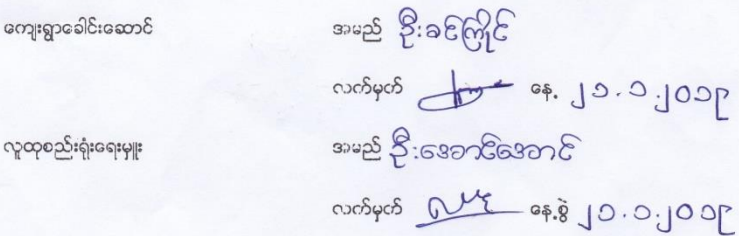 ကျေးရွာခေါင်းဆောင် အမည် ဦးခင်ကြိုင်
လက်မှတ် နေ့ ၂၁.၁.၂၀၁၉
လူထုစည်းရုံးရေးမှူး အမည် ဦးအောင်အောင်
လက်မှတ် နေ့စွဲ ၂၁.၁.၂၀၁၉